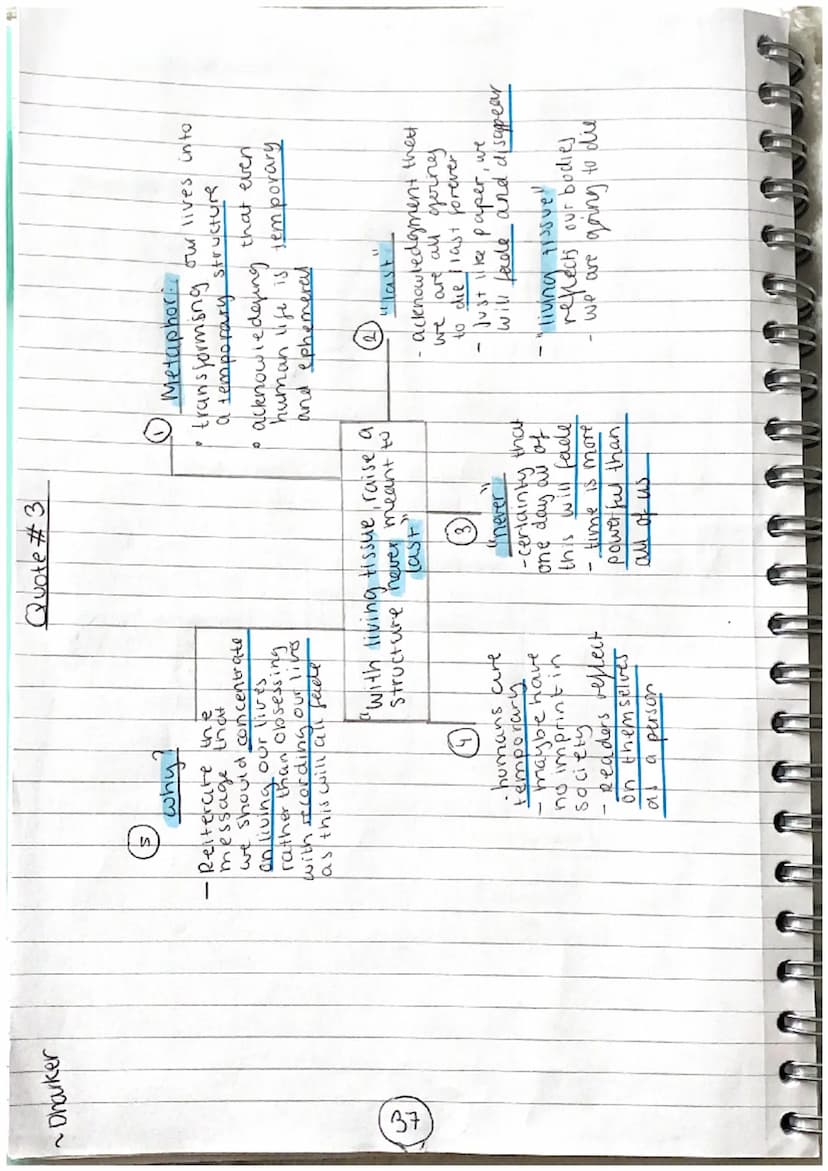 ~ Dharker
Quote #3
"with living tissue, raise a
structure never meant to
last"
1
Metaphor:
• transforming our lives into
a temporary structure
• acknowledging that even
human life is temporary
and ephemeral
2
"last"
- acknowledgment that
we are all going
to die / last forever
- Just like paper, we
will fade and disappear
- "living tissue"
reflects our bodies
- we are going to die
3
"never"
- certainty that
one day all of
this will fade
- time is more
powerful than
all of us
4
- humans are
temporary
- maybe have
no imprint in
society
- Readers reflect
on themselves
as a person
5
why?
- Reiterate the
message that
we should concentrate
on living our lives
rather than obsessing
with recording our lives
as this will all fade
37